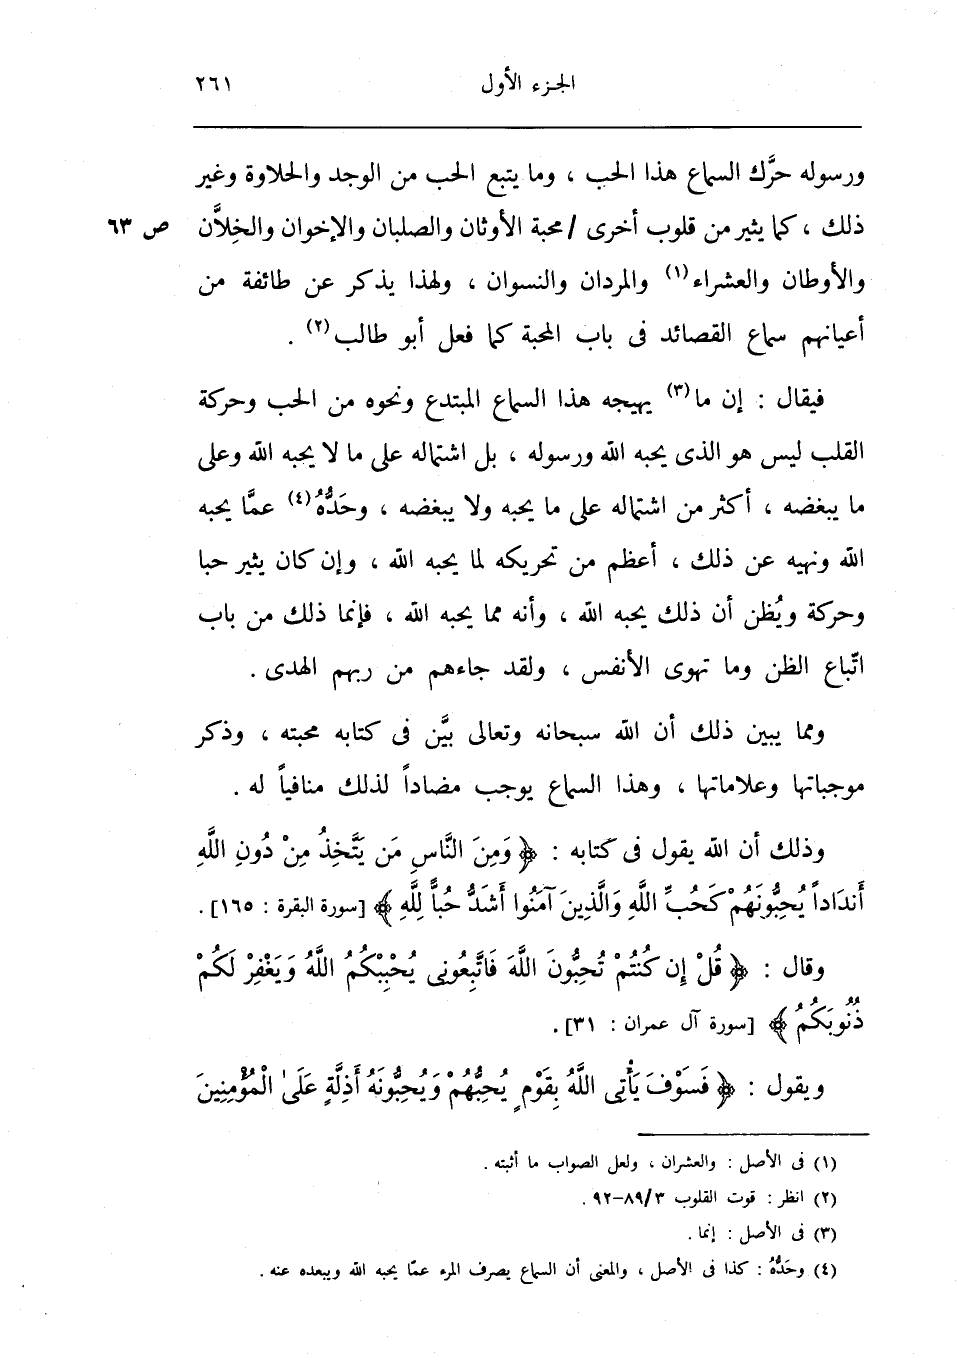 الجزء الأول ٢٦١
ورسوله حرَّك السماع هذا الحب ، وما يتبع الحب من الوجد والحلاوة وغير
ذلك ، كما يثير من قلوب أخرى / محبة الأوثان والصلبان والإخوان والخِلاَّن ص ٦٣
والأوطان والعشراء(١) والمردان والنسوان ، ولهذا يذكر عن طائفة من
أعيانهم سماع القصائد فى باب المحبة كما فعل أبو طالب(٢) .
فيقال : إن ما(٣) يهيجه هذا السماع المبتدع ونحوه من الحب وحركة
القلب ليس هو الذى يحبه الله ورسوله ، بل اشتماله على ما لا يحبه الله وعلى
ما يبغضه ، أكثر من اشتماله على ما يحبه ولا يبغضه ، وحَدُّهُ(٤) عمَّا يحبه
الله ونهيه عن ذلك ، أعظم من تحريكه لما يحبه الله ، وإن كان يثير حبا
وحركة ويُظن أن ذلك يحبه الله ، وأنه مما يحبه الله ، فإنما ذلك من باب
اتّباع الظن وما تهوى الأنفس ، ولقد جاءهم من ربهم الهدى .
ومما يبين ذلك أن الله سبحانه وتعالى بيَّن فى كتابه محبته ، وذكر
موجباتها وعلاماتها ، وهذا السماع يوجب مضاداً لذلك منافياً له .
وذلك أن الله يقول فى كتابه : ﴿ وَمِنَ النَّاسِ مَن يَتَّخِذُ مِنْ دُونِ اللَّهِ
أَندَاداً يُحِبُّونَهُمْ كَحُبِّ اللَّهِ وَالَّذِينَ آمَنُوا أَشَدُّ حُباًّ لِلَّهِ ﴾ [سورة البقرة : ١٦٥] .
وقال : ﴿ قُلْ إِن كُنتُمْ تُحِبُّونَ اللَّهَ فَاتَّبِعُونِى يُحْبِبْكُمُ اللَّهُ وَيَغْفِرْ لَكُمْ
ذُنُوبَكُمُ ﴾ [سورة آل عمران : ٣١] .
ويقول : ﴿ فَسَوْفَ يَأْتِى اللَّهُ بِقَوْمٍ يُحِبُّهُمْ وَيُحِبُّونَهُ أَذِلَّةٍ عَلَىٰ الْمُؤْمِنِينَ
(١) فى الأصل : والعشران ، ولعل الصواب ما أثبته .
(٢) انظر : قوت القلوب ٣/٨٩–٩٢ .
(٣) فى الأصل : إنما .
(٤) وحَدُّهُ : كذا فى الأصل ، والمعنى أن السماع يصرف المرء عمّا يحبه الله ويبعده عنه .